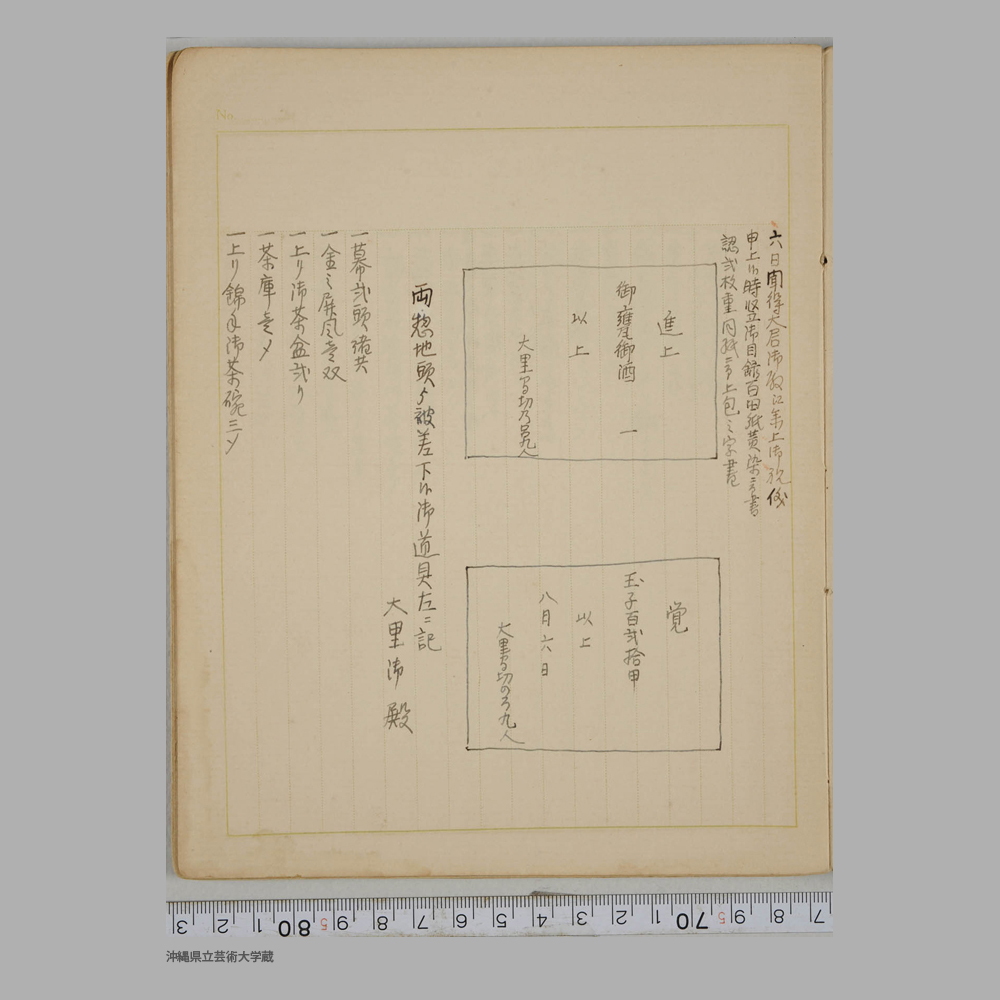 六日聞得大君御殿江参上御祝儀
申上候時竪御目録百田紙黄染ニ而書
認弐枚重同紙ニ而上包之字書
進上
御甕御酒 一
以上
大里間切
覚
玉子百弐拾甲
以上
八月六日
大里間切
両惣地頭ゟ被差下候御道具左ニ記
大里御殿
一幕弐頭緒共
一金之屏風壱双
一上り御茶盆弐ツ
一茶庫壱〆
一上り錦手御茶碗三〆
No.
3 2 1 80 9 8 7 6 5 4 3 2 1 70 9 8 7
沖縄県立芸術大学蔵